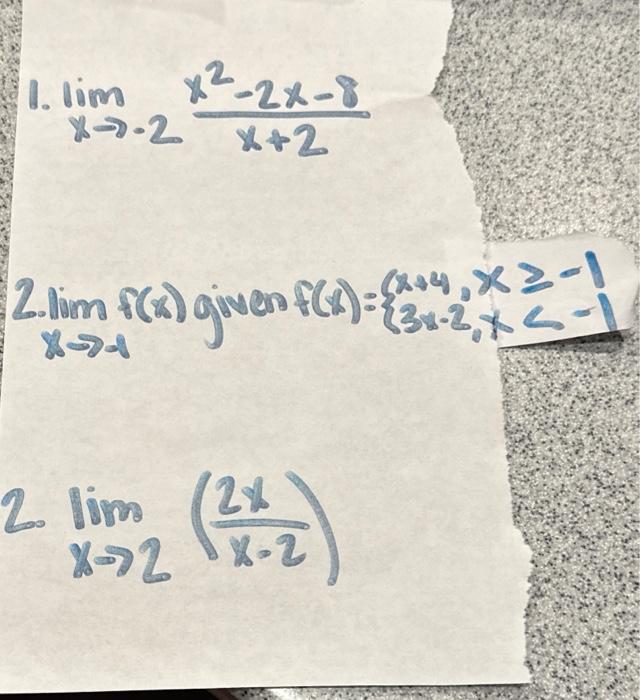 1. lim x→-2 (x²-2x-8)/(x+2)
2. lim x→-1 f(x) given f(x)={x+4, x ≥ -1
{3x-2, x < -1
2. lim x→2 (2x/(x-2))